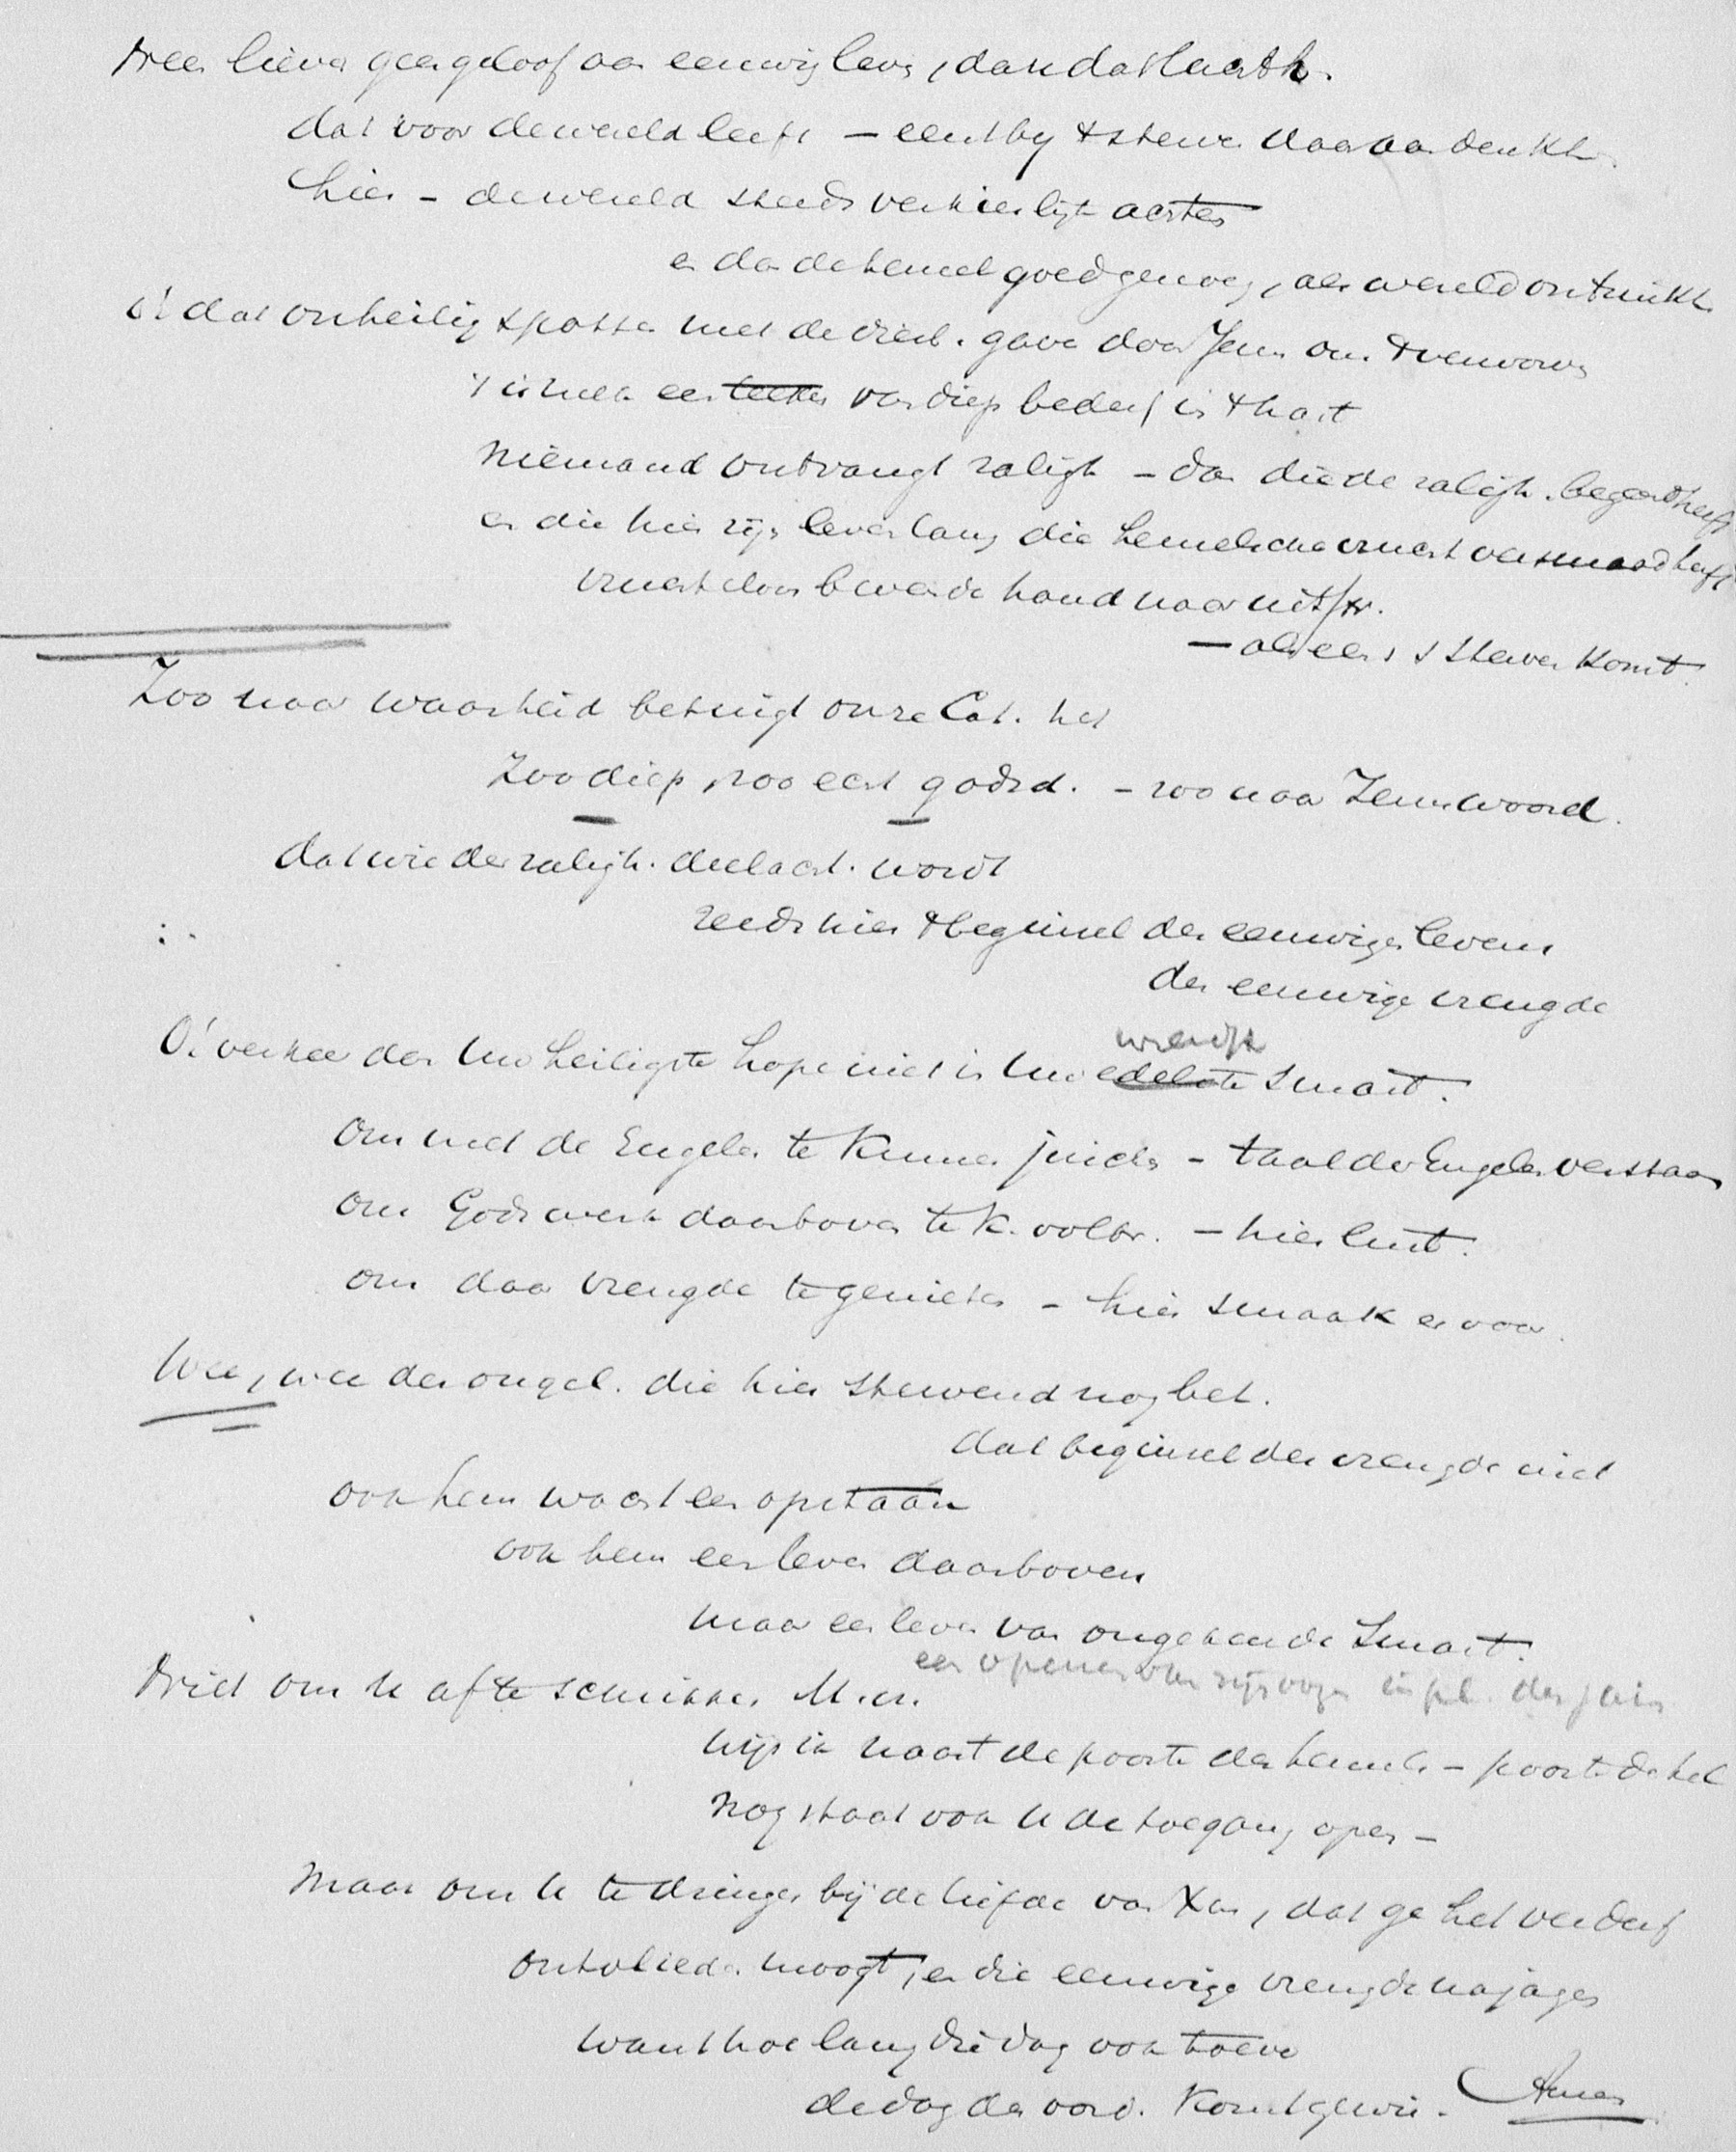 Neen liever geen geloof aan eeuwig leven, dan dat
dat voor de wereld leeft – eerst by 't sterven daaraan denkt
hier – de wereld steeds verkieslijk achten
en dan de hemel goed genoeg, als wereld ontzinkt.
o! dat onheilig spotten met de gave door Jezus ons verworven
't is een teeken van diep bederf in 't hart
Niemand ontvangt zaligh – dan die de zaligh. begeerd heeft
en die hier zijn leven lang die hemelsche vrucht versmaad heeft
vruchteloos de hand naar uitstr.
– als eens 't sterven komt.
Zoo naar waarheid betuigt onze Cat. het
Zoo diep, zoo echt godsd. – zoo naar Jezus woord.
dat wie der zaligh. deelacht. wordt
reeds hier 't beginsel des eeuwigen levens
der eeuwige vreugde
O! verkeer dan Uw heiligste hope niet in Uw edelste smart.
om met de Engelen te kunnen juichen – taal der Engelen verstaan
om Gods werk daarboven te k. volbr. – hier lust.
om daar vreugde te genieten – hier smaak er voor.
Wee, wee den ongel. die hier stervend nog
dat beginsel der vreugde niet
ook hem wacht een opstaan
ook hem een leven daarboven
maar een leven van ongekende Smart.
een openen van zijn oogen in pl. der pijn
Niet om U af te schrikken M.
wijs ik naast de poorte des hemels – poorte der hel
Nog staat ook U de toegang open –
Maar om U te dringen bij de liefde van Xus, dat ge het verderf
ontvlieden moogt, en die eeuwige vreugde najagen
want hoe lang die dag ook toeve
de dag der oord. komt gewis. Amen